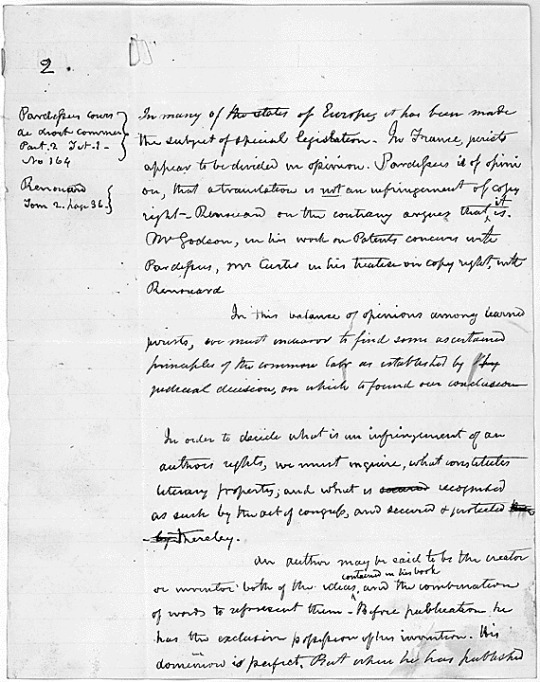 2.
Pardessus cours
de droit commer
Part. 2 Tit. 1-
No 164
Renouard
Tom 2. page 36.
In many of the states of Europe, it has been made
the subject of special legislation. In France, jurists
appear to be divided in opinion. Pardessus is of opini
on, that a translation is not an infringement of copy
right - Renouard on the contrary argues that it is.
Mr Godson, in his work on Patents concurs with
Pardessus, Mr Curtis in his treatise on copy right, with
Renouard
In this balance of opinions among learned
jurists, we must endeavor to find some ascertained
principles of the common law as established by
judicial decision, on which to found our conclusion
In order to decide what is an infringement of an
authors rights, we must inquire, what constitutes
literary property, and what is secured recognised
as such by the act of congress, and secured & protected
by thereby.
An author may be said to be the creator
or inventor both of the ideas contained in his book, and the combination
of words to represent them - Before publication he
has the exclusive possession of his invention. His
dominion is perfect. But when he has published